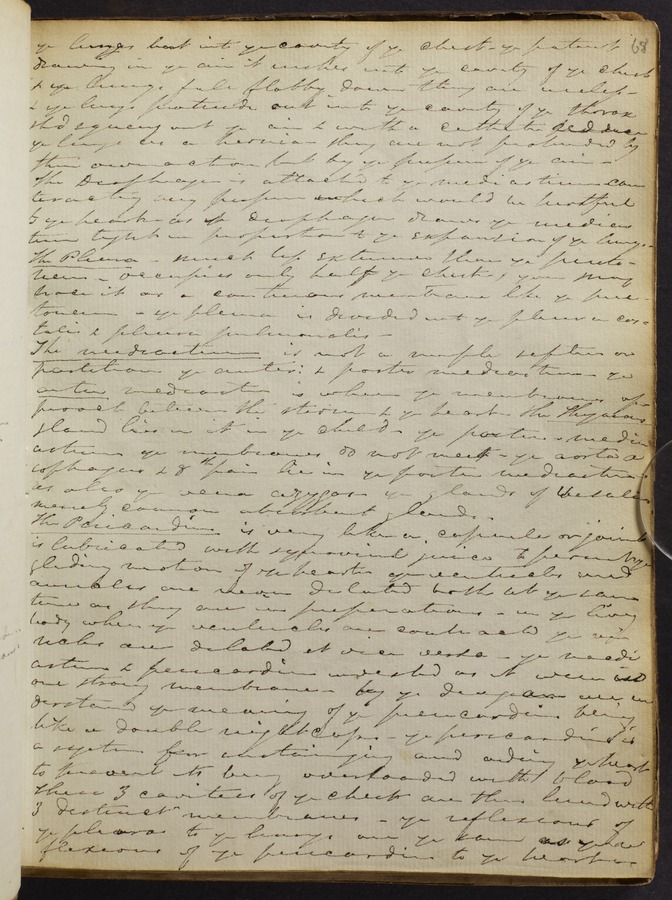 68
ye lungs but into ye cavity of ye chest - ye patient
drawing in ye air it rushes into ye cavity of ye chest
& ye lungs fall flabby down they are useless -
& ye lungs protrude out into ye cavity of ye thorax
shd squeeze out ye air & with a catheter
ye lungs as a hernia - they are not protruded by
their own action but by ye pressure of ye air -
The Oesophagus is attached to ye mediastinum coun
teracting any pressure which would be hurtful
to ye heart as ye oesophagus draws ye medias
tinum tight in proportion to ye expansion of ye lungs -
The Pleura - much less extensive than ye perito-
neum - occupies only half ye chest, you may
trace it as a continuous membrane like ye peri
toneum - ye pleura is divided into ye pleura cos-
talis & pleura pulmonalis -
The mediastinum is not a simple septum or
partition ye anterior & posterior mediastinum ye
anterior mediastin is where ye membranes ap-
proach between the sternum & ye heart - the Thymus
gland lies in it in ye child - ye posterior medi
astinum ye membranes do not meet - ye aorta
oesophagus & 8th pair lie in ye posterior mediastinum
as also ye vena azygos ye glands of Vesalius
merely common absorbent glands.
The Pericardium is very like a capsule or joint
is lubricated with synovial juice to permit ye
gliding motion of ye heart ye ventricles and
auricles are never dilated both at ye same
time as they are in preparations - in ye living
body when ye ventricles are contracted ye auri
cles are dilated et vice versa - ye medi
astinum & pericardium invested as it were in
one strong membrane - by ye diagram we un
derstand ye meaning of ye pericardium being
like a double nightcap - ye pericardium is
a system for sustaining and aiding ye heart
to prevent its being overloaded with blood
These 3 cavities of ye chest are thus lined with
3 distinct membranes - ye reflexions of
ye pleura to ye lungs are ye same as ye re
flexions of ye pericardium to ye heart -